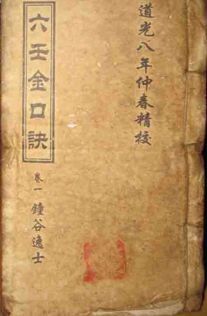 道光八年仲春精校
六壬金口訣
卷一 鐘谷逸士